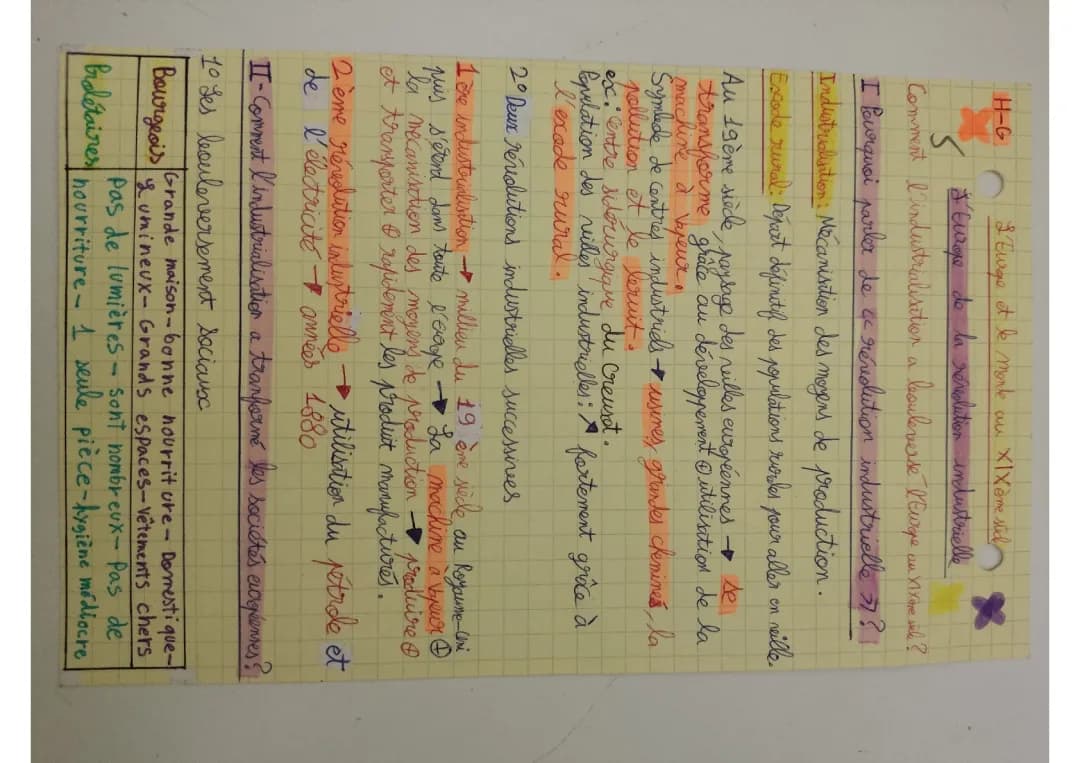 H-G
L'Europe et le monde au XIXème siècl
5
L'Europe de la révolution industrielle
Comment l'industrialisation a bouleversé l'Europe au XIXème siècle?
I Pourquoi parler de « révolution industrielle »?
Industrialisation: Mécanisation des moyens de production.
Exode rural: Départ définitif des populations rurales pour aller en ville.
Au 19ème siècle, paysage des villes européennes → se
transforme grâce au développement ⊕ utilisation de la
machine à vapeur.
Symbole de centres industriels → usines, grandes cheminés, la
pollution et le bruit.
ex: Centre sidérurgique du Creusot.
Population des villes industrielles: ↗ fortement grâce à
l'exode rural.
2° Deux révolutions industrielles successives
1ère industrialisation → milieu du 19ème siècle au Royaume-Uni
puis s'étend dans toute l'europe → La machine a vapeur ⊕
la mécanisation des moyens de production → produire ⊕
et transporter ⊕ rapidement les produit manufacturés.
2ème révolution industrielle → utilisation du pétrole et
de l'électricité → années 1880
II- Comment l'industrialisation a tranformé les sociétés européennes?
1° Les bouleversement sociaux
Bourgeois
Grande maison- bonne nourriture- Domestique-
Lumineux- Grands espaces- Vêtements chers
Prolétaires
Pas de lumières- sont nombreux- Pas de
nourriture- 1 seule pièce- hygiène médiocre